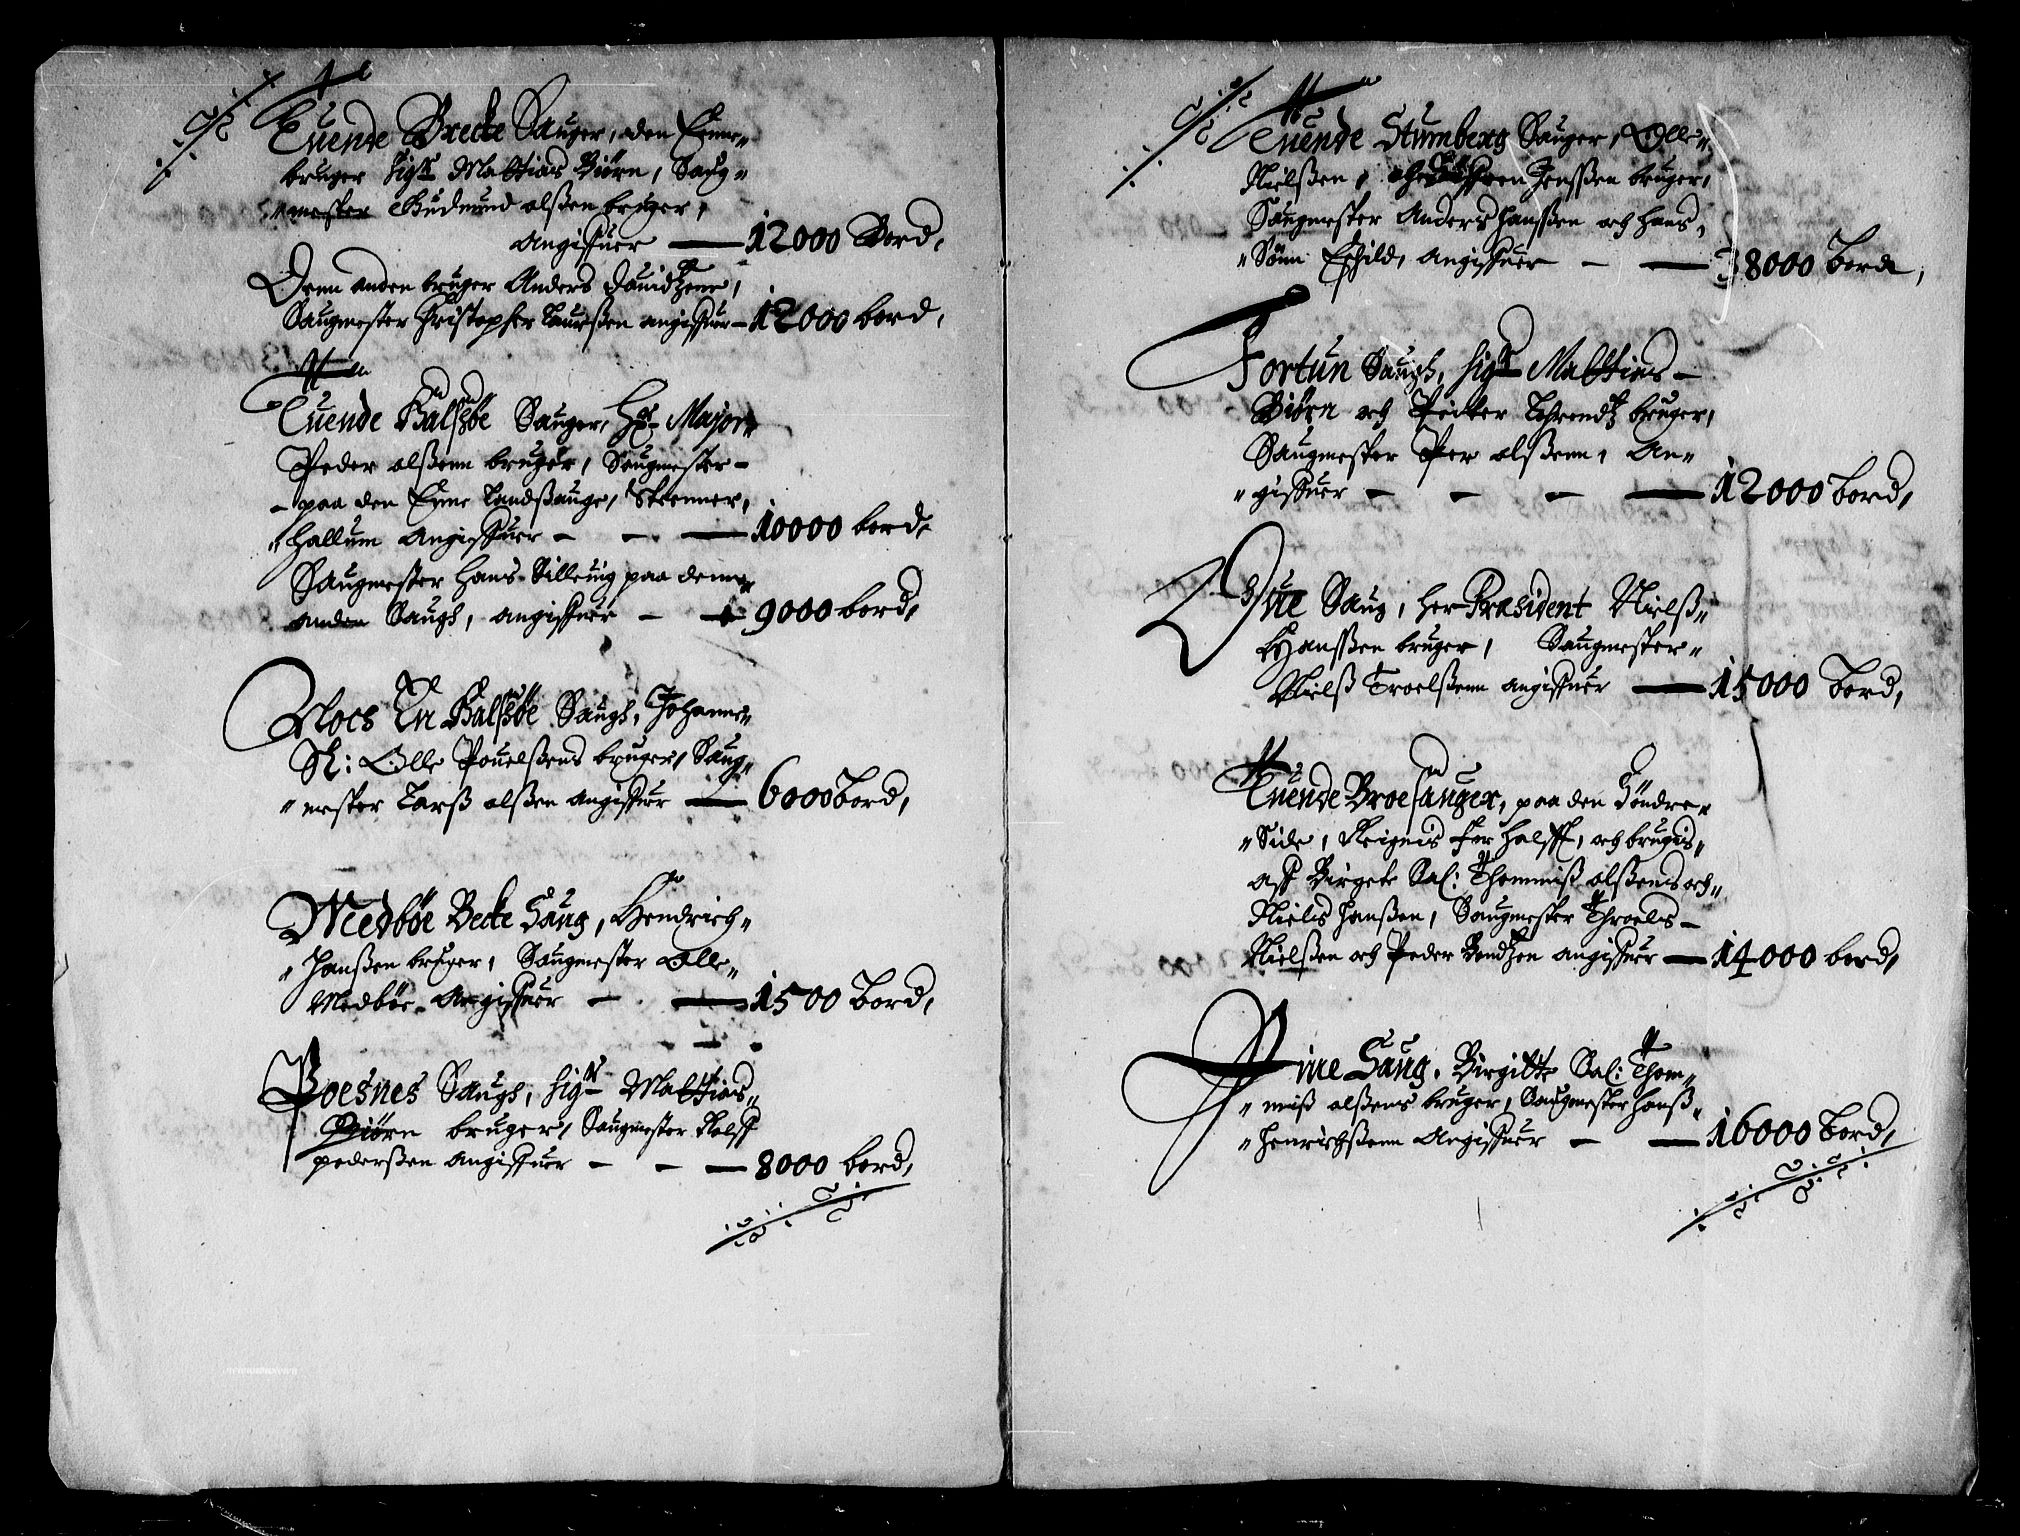 Tuende Brecke Sauger, den Enne-
bruger Sigr Mattias Biørn, Saug-
mester Gudmund olßen bruger,
Angiffuer — 12000 Bord,
Denn anden bruger Anders Dauidtzenn,
Saugmester Christopher Laurßen angiffuer — 12000 bord,
Tuende Balßøe Sauger, Hr Major
Peder olßenn bruger, Saugmester
paa den Enne Landsauge, Steenner,
Hallum Angiffuer — — — 10000 bord
Saugmester Hans Silleuig paa denn
anden Saugh, angiffuer — — 9000 bord,
Nock En Balßøe Saugh, Johannes
Sl: Olle Pouelßens bruger, Saug
mester Larß olßen angiffuer — 6000 Bord,
Medbøe Becke Saug, Hendrich
Hanßen bruger, Saugmester Olle
Medbøe Angiffuer — — 1500 Bord,
Boesnes Saugh, Sigr Mattias
Biørn bruger, Saugmester Rolff
pederßen angiffuer — — — 8000 bord,
Tuende Stumberg Sauger, Olle
Nielßen, Jenßen bruger,
Saugmester Anders Hanßen och Hans
Sønn Eschild, angiffuer — — 38000 Bord,
Fortun Saugh, Sigr Mattias
Biørn och Peitter Lohrendtz bruger,
Saugmester Per olßenn, An-
giffuer — — — — 12000 Bord,
Due Saug, Her Præsident Nielß
Hanßen bruger, Saugmester
Nielß Troelßenn angiffuer — 15000 Bord,
Tuende Broesauger, paa den Søndre
Side, Reignis for Halff, och brugis
aff Birgete Sal: Thommiß olßens och
Niels Hanßen, Saugmester Throels
Nielßen och Peder Bendtzen angiffuer — 14000 bord,
Fine Saug, Birgitte Sal: Thom-
miß olßens bruger, Saugmester Hanß
Henrichßenn Angiffuer — — 16000 Bord,